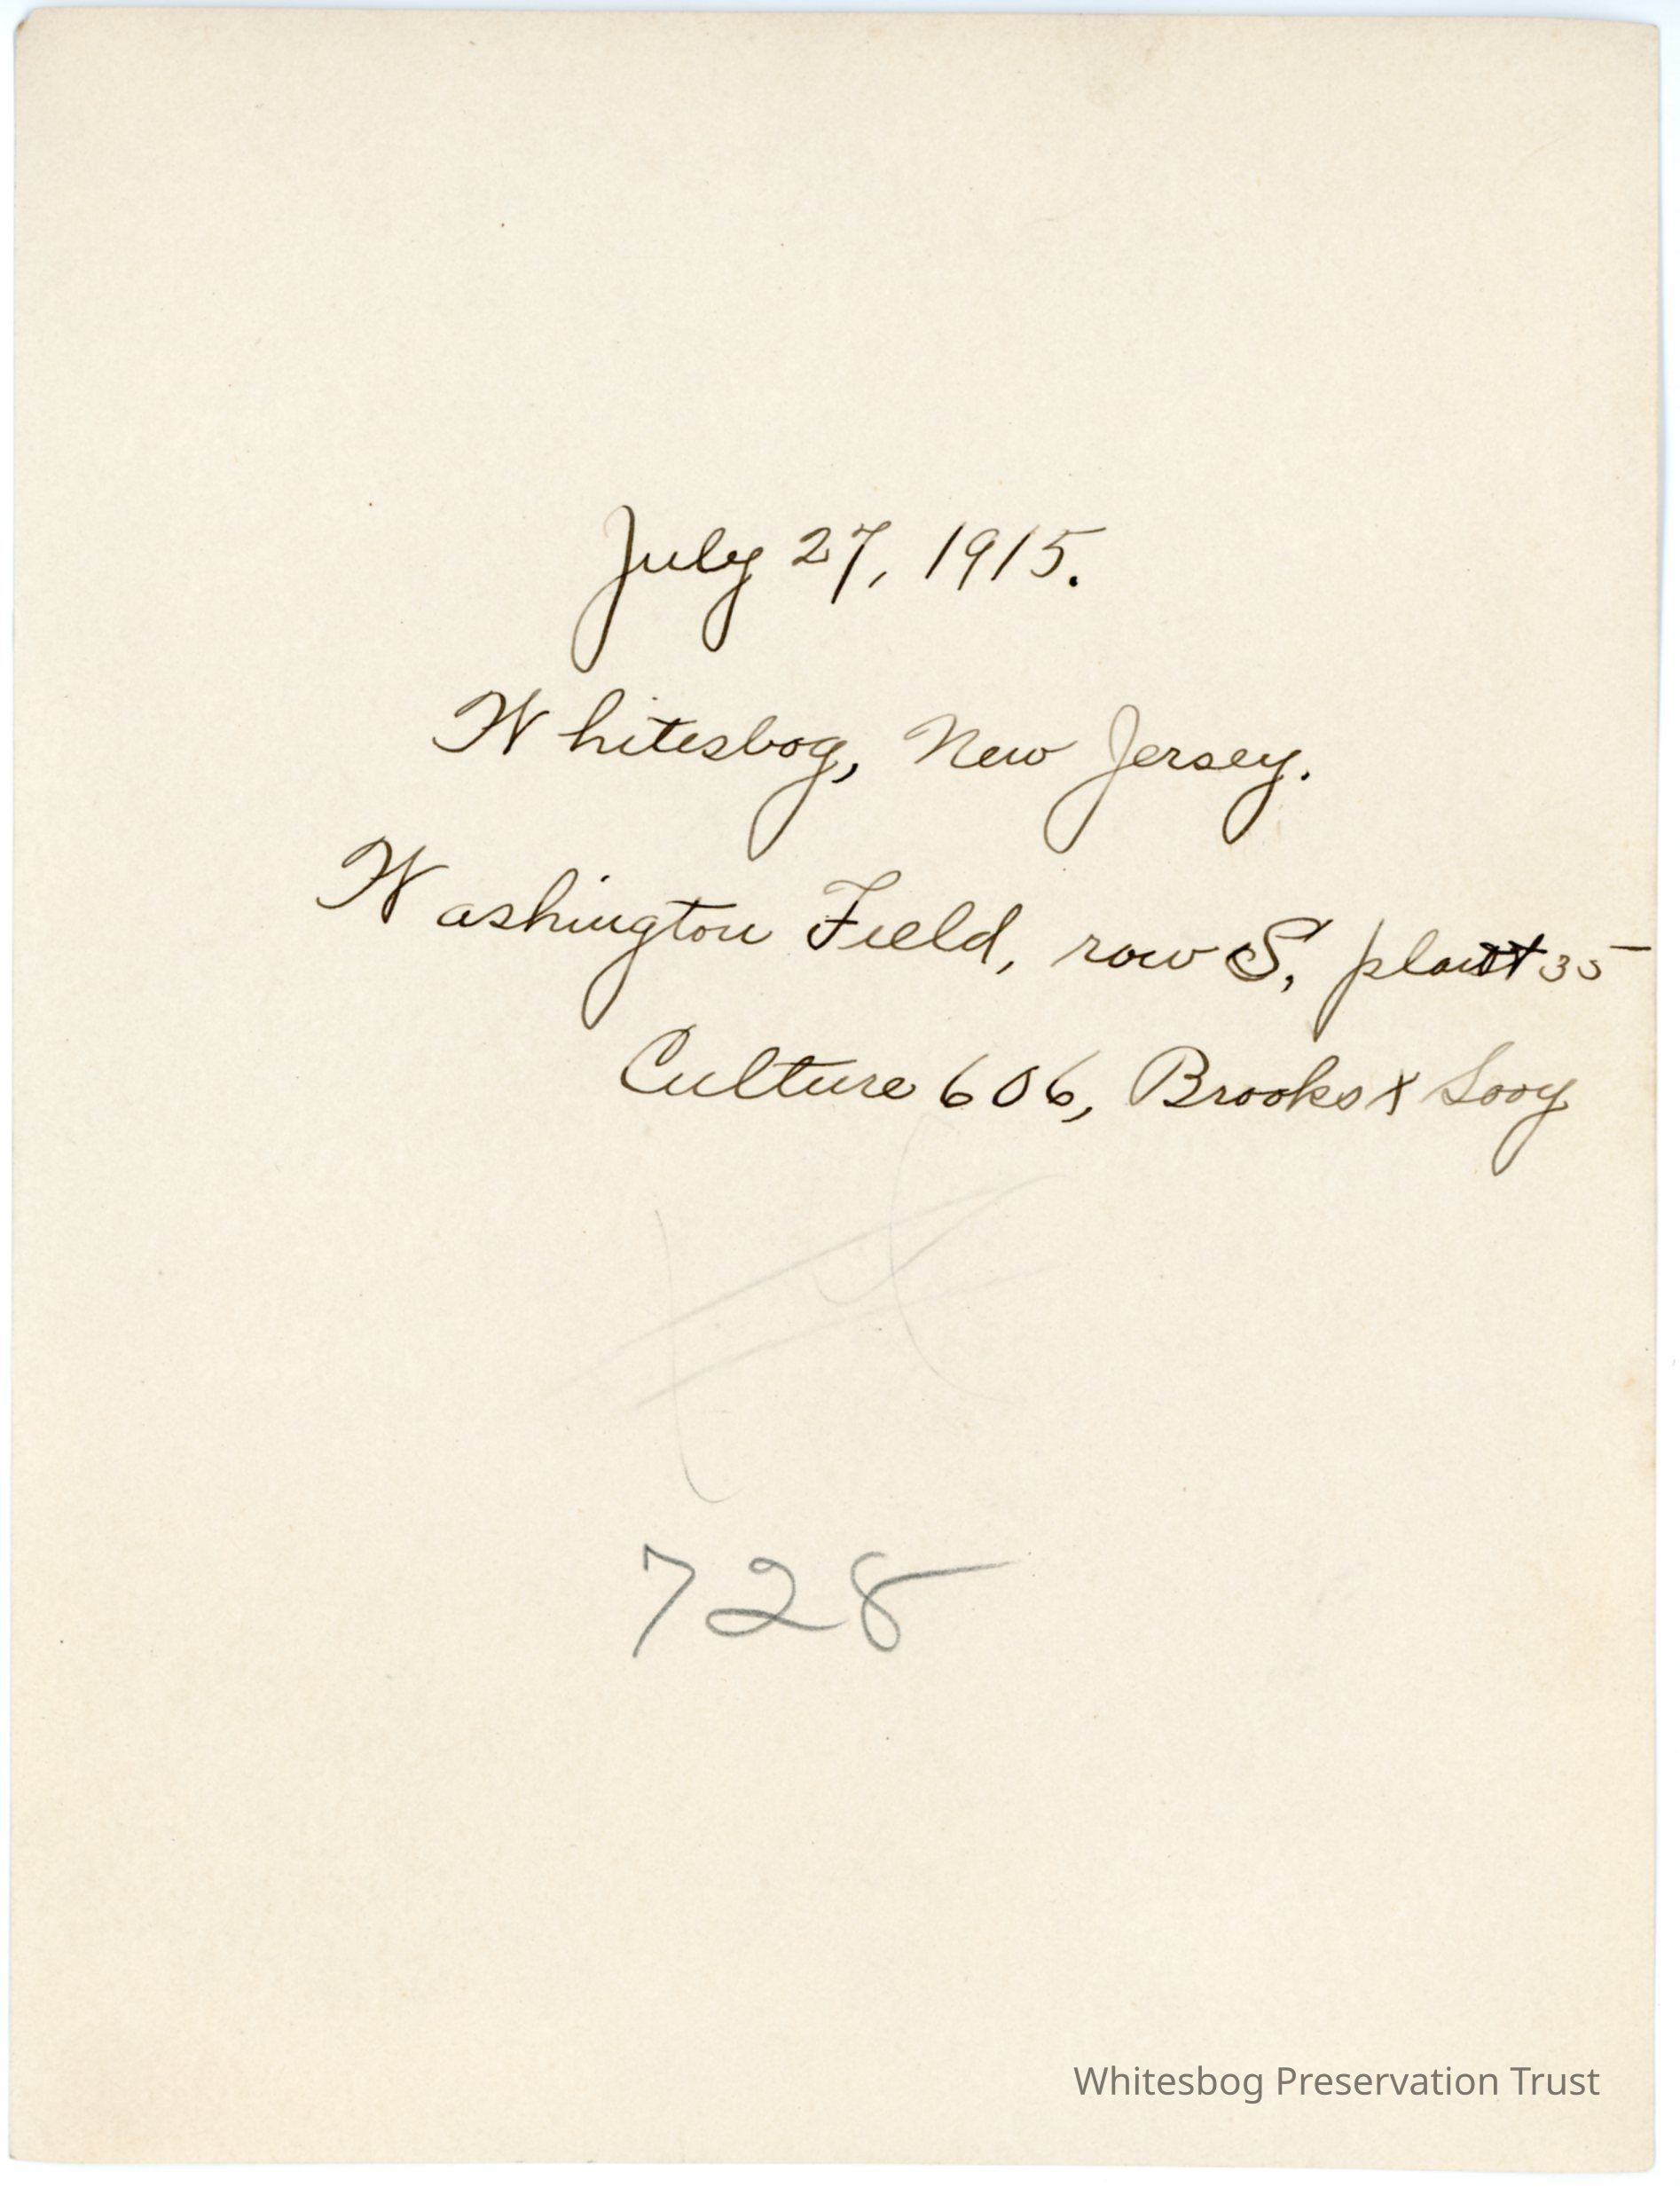 July 27, 1915.
Whitesbog, New Jersey.
Washington Field, row S, plant 35
Culture 606, Brooks x Sooy
728
Whitesbog Preservation Trust